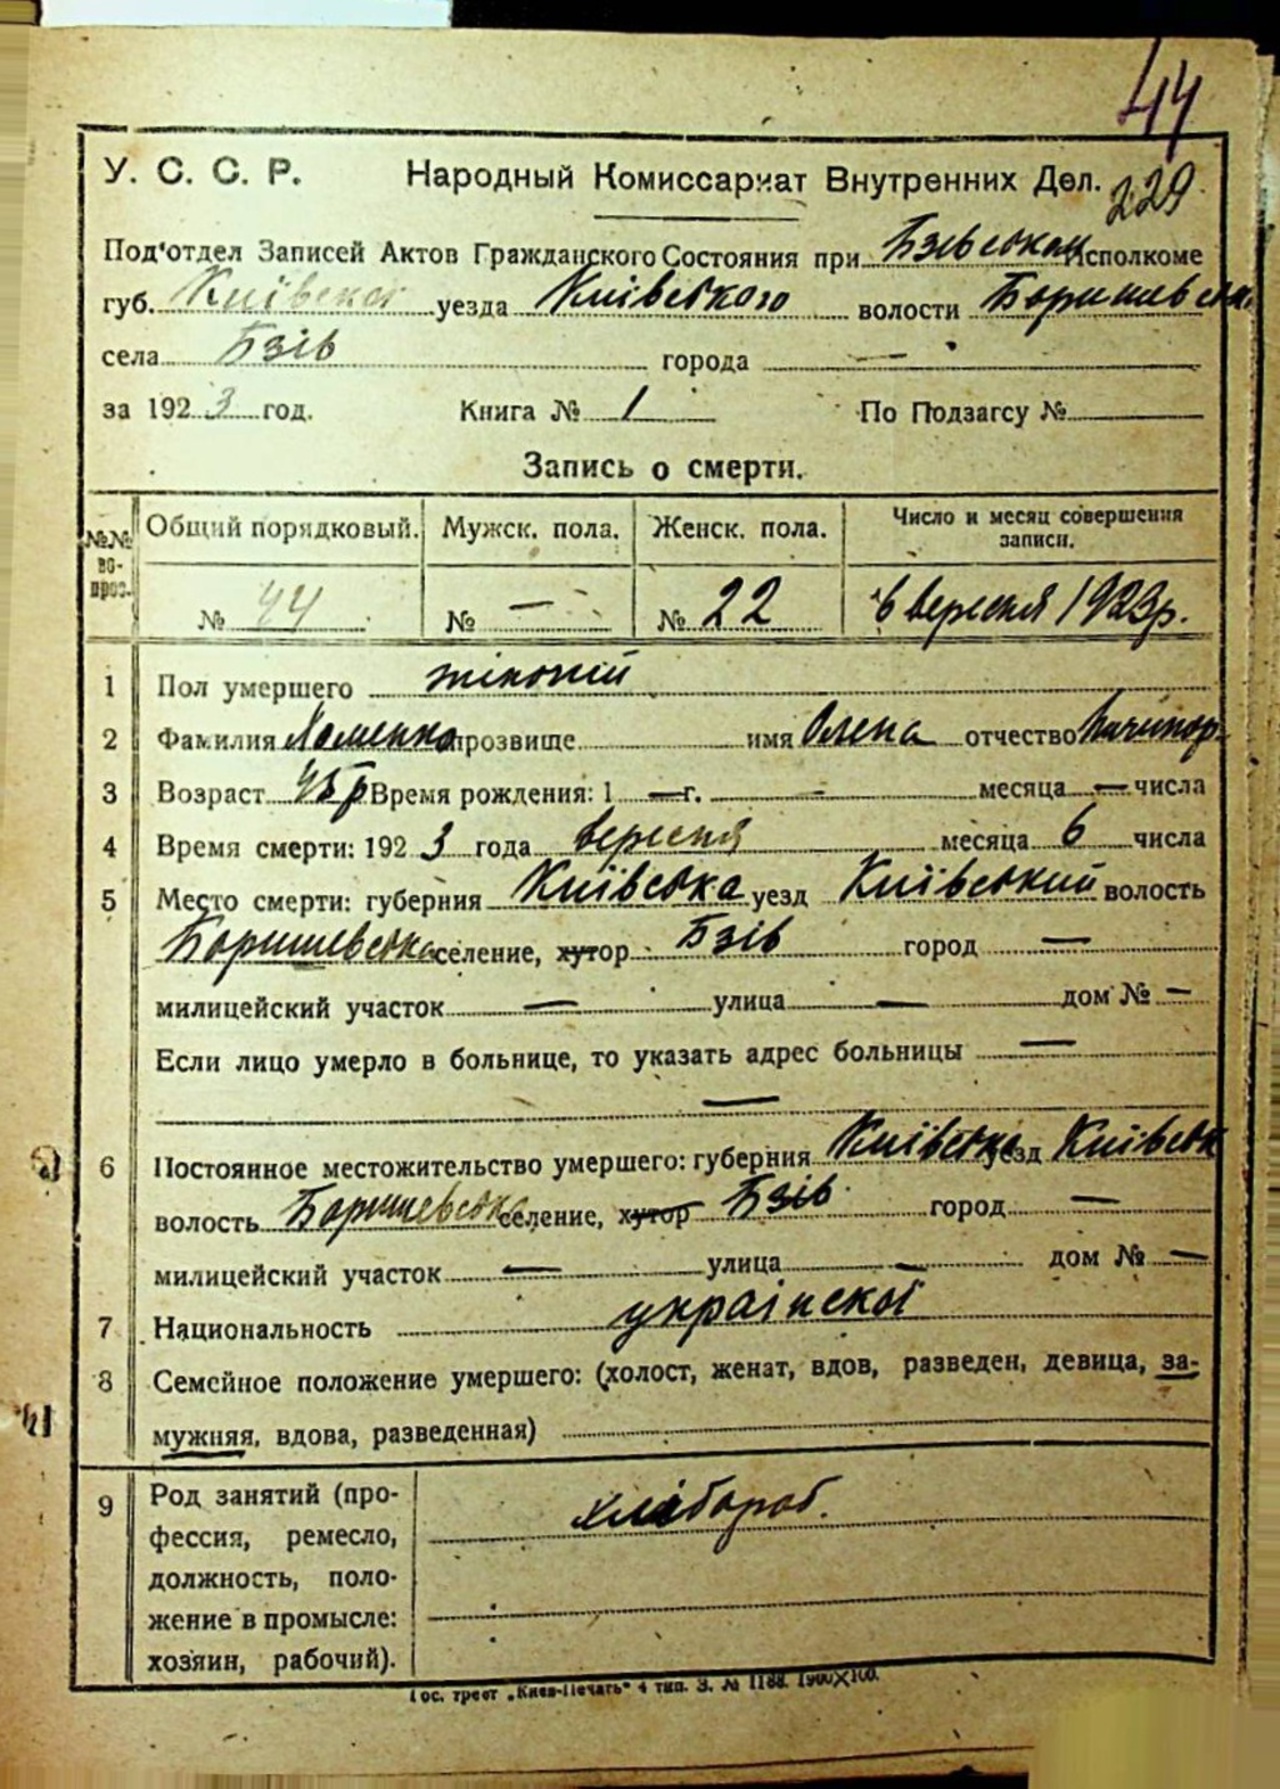 44
У. С. С. Р. Народный Комиссариат Внутренних Дел.
229
Под'отдел Записей Актов Гражданского Состояния при Бзівськом Исполкоме
губ. Київської уезда Київського волости Боришевськ.
села Бзів города —
за 1923 год. Книга № 1 По Подзагсу №
Запись о смерти.
№№ во-прос. Общий порядковый. Мужск. пола. Женск. пола. Число и месяц совершения записи.
№ 44 № — № 22 6 вересня 1923р.
1 Пол умершего жіночий
2 Фамилия Хоменко прозвище имя Олена отчество Ничипор.
3 Возраст 45 р Время рождения: 1 — г. — месяца — числа
4 Время смерти: 1923 года вересня месяца 6 числа
5 Место смерти: губерния Київська уезд Київський волость
Боришевська селение, хутор Бзів город —
милицейский участок — улица — дом № —
Если лицо умерло в больнице, то указать адрес больницы —
—
6 Постоянное местожительство умершего: губерния Київська уезд Київськ
волость Боришевська селение, хутор Бзів город —
милицейский участок — улица — дом № —
7 Национальность української
8 Семейное положение умершего: (холост, женат, вдов, разведен, девица, за-
мужняя, вдова, разведенная)
9 Род занятий (про- хлібороб.
фессия, ремесло,
должность, поло-
жение в промысле:
хозяин, рабочий).
Гос. трест „Киев-Печать" 4 тип. З. № 1188. 1900Х100.